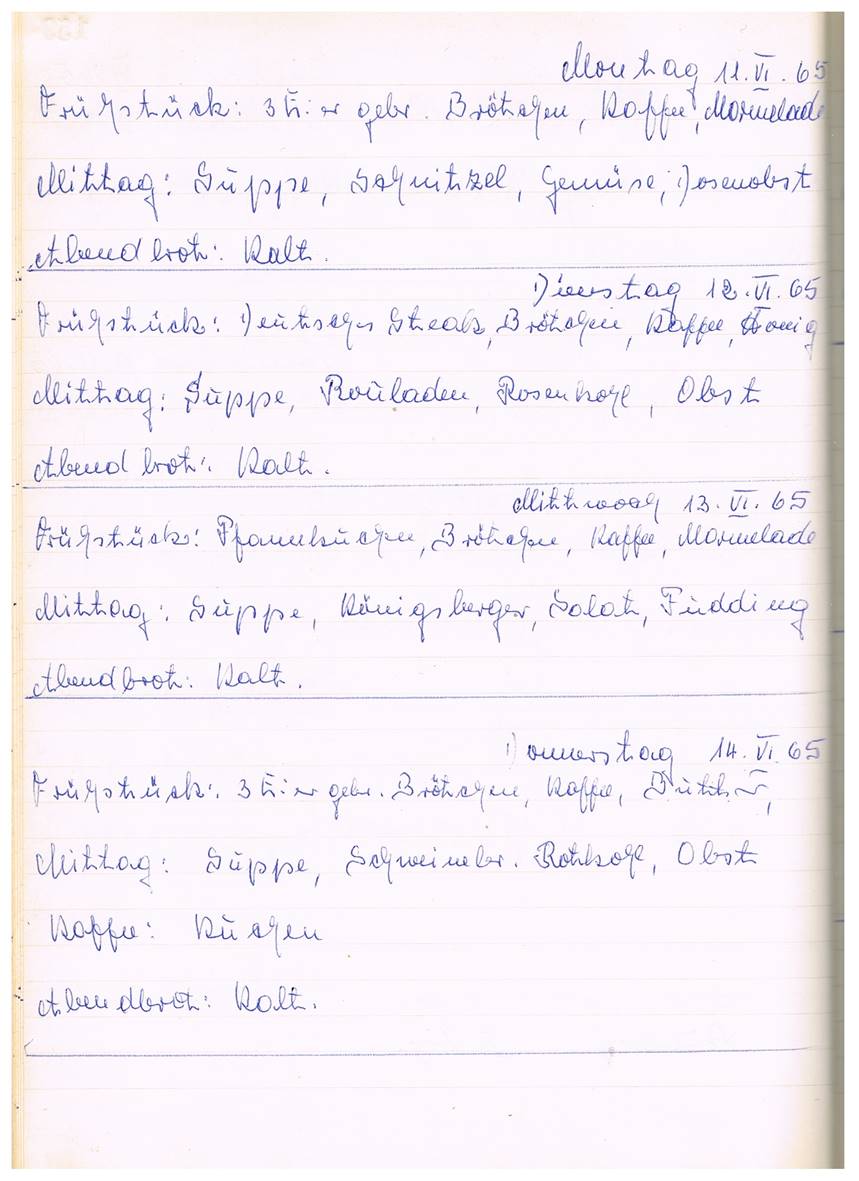 Montag 11.VI.65
Frühstück: 3 Eier gebr. Brötchen, Kaffee, Marmelade
Mittag: Suppe, Schnitzel, Gemüse, Dosenobst
Abendbrot: Kalt.
Dienstag 12.VI.65
Frühstück: Deutsches Steak, Brötchen, Kaffee, Honig
Mittag: Suppe, Rouladen, Rosenkohl, Obst
Abendbrot: Kalt.
Mittwoch 13.VI.65
Frühstück: Pfannkuchen, Brötchen, Kaffee, Marmelade
Mittag: Suppe, Königsberger, Salat, Pudding
Abendbrot: Kalt.
Donnerstag 14.VI.65
Frühstück: 3 Eier gebr. Brötchen, Kaffee,
Mittag: Suppe, Schweinebr. Rotkohl, Obst
Kaffee: Kuchen
Abendbrot: Kalt.